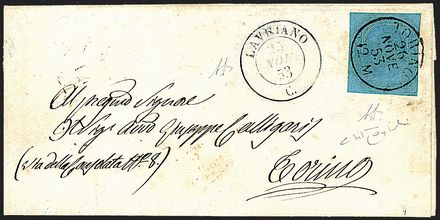 LAVRIANO
25
NOV
53
C.
TORINO
26
NOVE
53
12 M
Al Signore
Il Sig. Giuseppe Calligaris
(Via della Consolata N° 8.)
Torino